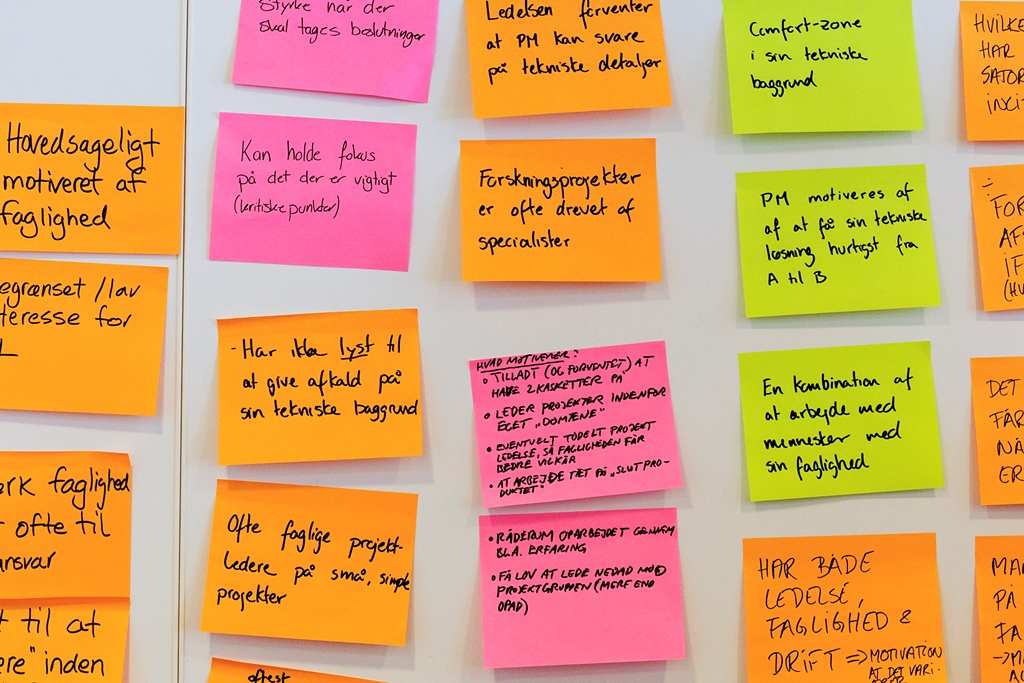 Hovedsageligt
motiveret af
faglighed
egrænset /lav
teresse for
L
ark faglighed
ofte til
ansvar
t til at
ere" inden
Styrke når der
skal tages beslutninger
Kan holde fokus
på det der er vigtigt
(kritiske punkter)
- Har ikke lyst til
at give afkald på
sin tekniske baggrund
Ofte faglige projekt-
ledere på små, simple
projekter
oftest
Ledelsen forventer
at PM kan svare
på tekniske detaljer
Forskningsprojekter
er ofte drevet af
specialister
HVAD MOTIVERER?
• TILLADT (OG FORVENTET) AT
HAVE 2 KASKETTER PÅ
• LEDER PROJEKTER INDENFOR
EGET "DOMÆNE"
• EVENTUELT TODELT PROJEKT
LEDELSE, SÅ FAGLIGHEDEN FÅR
BEDRE VILKÅR
• AT ARBEJDE TÆT PÅ "SLUTPRO-
DUKTET"
• RÅDERUM OPARBEJDET GENNEM
BL.A. ERFARING
• FÅ LOV AT LEDE NEDAD MOD
PROJEKTGRUPPEN (MERE END
OPAD)
Comfort-zone
i sin tekniske
baggrund
PM motiveres af
af at få sin tekniske
løsning hurtigst fra
A til B
En kombination af
at arbejde med
mennesker med
sin faglighed
HAR BÅDE
LEDELSE,
FAGLIGHED &
DRIFT => MOTIVATION
AT DET VARI-
HVILKE
HAR
SATOR
INCI
FOR
AFS
IF
(HV
DET
FÅR
NÅ
ER
MA
PÅ
FA